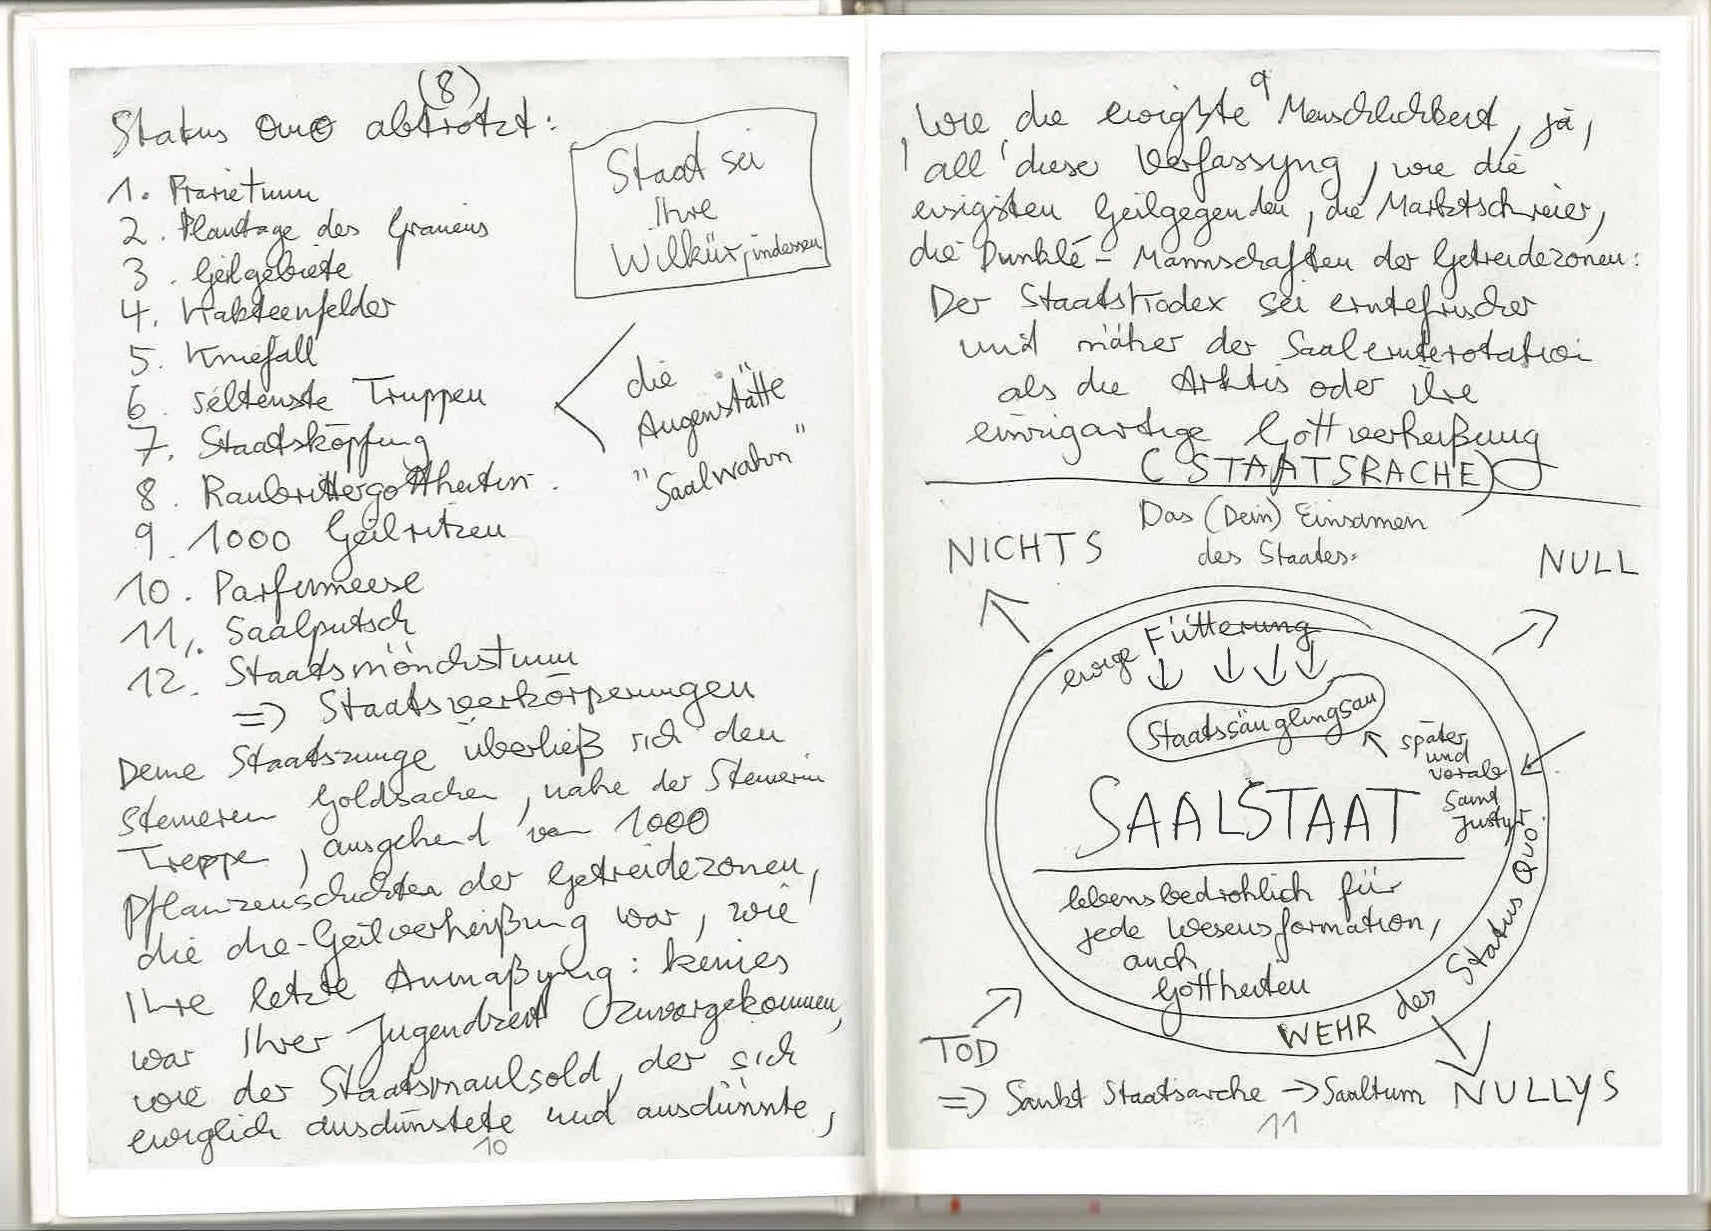 (8)
Status Quo abtrotzt:
1. Prärietum
2. Plantage des Grauens
3. Geilgebiete
4. Kakteenfelder
5. Kniefall
6. seltenste Truppen
7. Staatsköpfung
8. Raubrittergottheiten
9. 1000 Geilritzen
10. Parfumeese
11. Saalputsch
12. Staatsmönchstum
=> Staatsverkörperungen
Staat sei
Ihre
Wilkür, indessen
die
Augenstätte
"Saalwahn"
Deine Staatszunge überließ sich den
Steineren Goldsachen, nahe der Steinerin
Treppe, ausgehend von 1000
Pflanzenschichten der Getreidezonen,
die die-Geilverheißung war, wie
Ihre letzte Anmaßyng: keines
war Ihrer Jugendzeit zuvorgekommen,
wie der Staatsmaulsold, der sich
ewiglich ausdünstete und ausdünnte,
10
9
wie die ewigste Menschlichkeit, ja,
all diese Verfassyng, wie die
eisigsten Geilgegenden, die Marktschreier,
die Dunkle-Mannschaften der Getreidezonen:
Der Staatskodex sei erntefrischer
und näher der Saalernterotation
als die Arktis oder ihre
einzigartige Gottverheißung
(STAATSRACHE)
Das (Dein) Einsamen
des Staates:
NICHTS
NULL
ewige Fütterung
Staatssäuglingsau
später
und
vorab
Saint
Justyr.
SAALSTAAT
lebensbedrohlich für
jede Wesensformation,
auch
Gottheiten
WEHR der Status Quo
TOD
=> Sankt Staatsarche -> Saaltum NULLYS
11